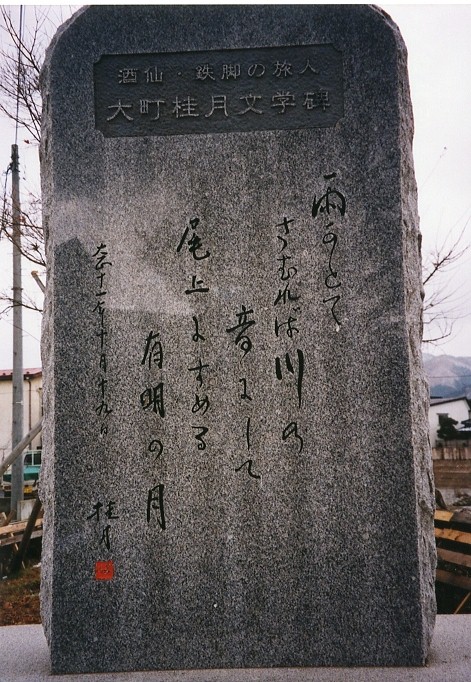 酒仙・鉄脚の旅人
大町桂月文学碑
雨かとて
さむれば川の
音にして
尾上にすめる
有明の月
大正十一年十月十九日
桂月